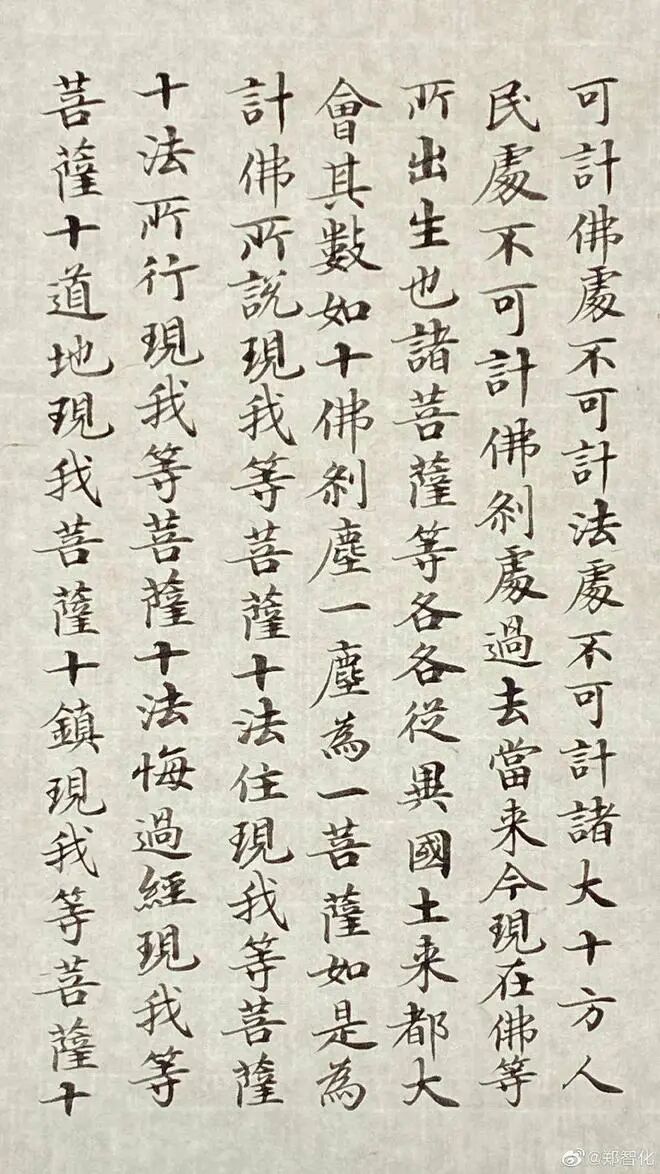 可計佛處不可計法處不可計諸大十方人
民處不可計佛剎處過去當来今現在佛等
所出生也諸菩薩等各各從異國土来都大
會其數如十佛剎塵一塵為一菩薩如是為
計佛所說現我等菩薩十法住現我等菩薩
十法所行現我等菩薩十法悔過經現我等
菩薩十道地現我菩薩十鎮現我等菩薩十
@郑智化